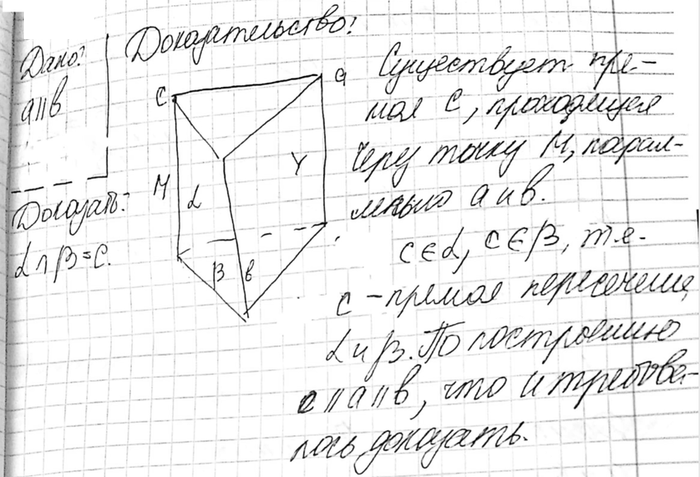 Дано:
a||b
Доказать:
α∩β=c.
Доказательство:
C
a
M
α
γ
β
b
Существует пря-
мая C, проходящая
через точку M, парал-
лельно a и b.
c∈α, c∈β, т.е.
c - прямая пересечения
α и β. По построению
c||a||b, что и требова-
лось доказать.